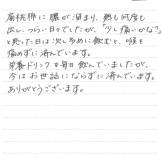 扁桃腺に膿が溜まり、熱も何度も
出い、つらい日々でしたが、「少し痛いかな?」
と思った日は決し多めに飲むと、喉を
痛めずに済んでいます。
栄養ドリンクを毎日飲んでいましたが、
今はお世話にならずに済んでいます。
ありがとうございます。